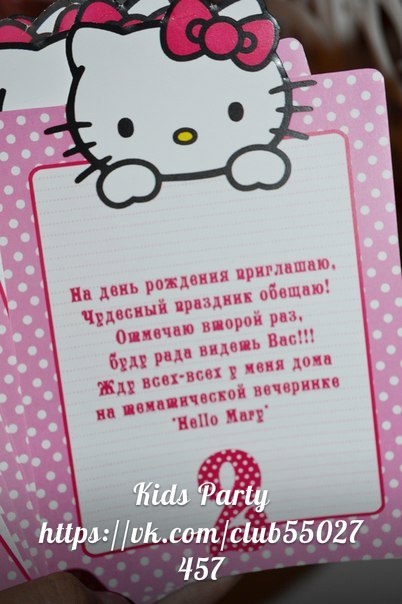 На день рождения приглашаю,
Чудесный праздник обещаю!
Отмечаю второй раз,
буду рада видеть Вас!!!
Жду всех-всех у меня дома
на тематической вечеринке
"Hello Mary"
2
Kids Party
https://vk.com/club55027
457